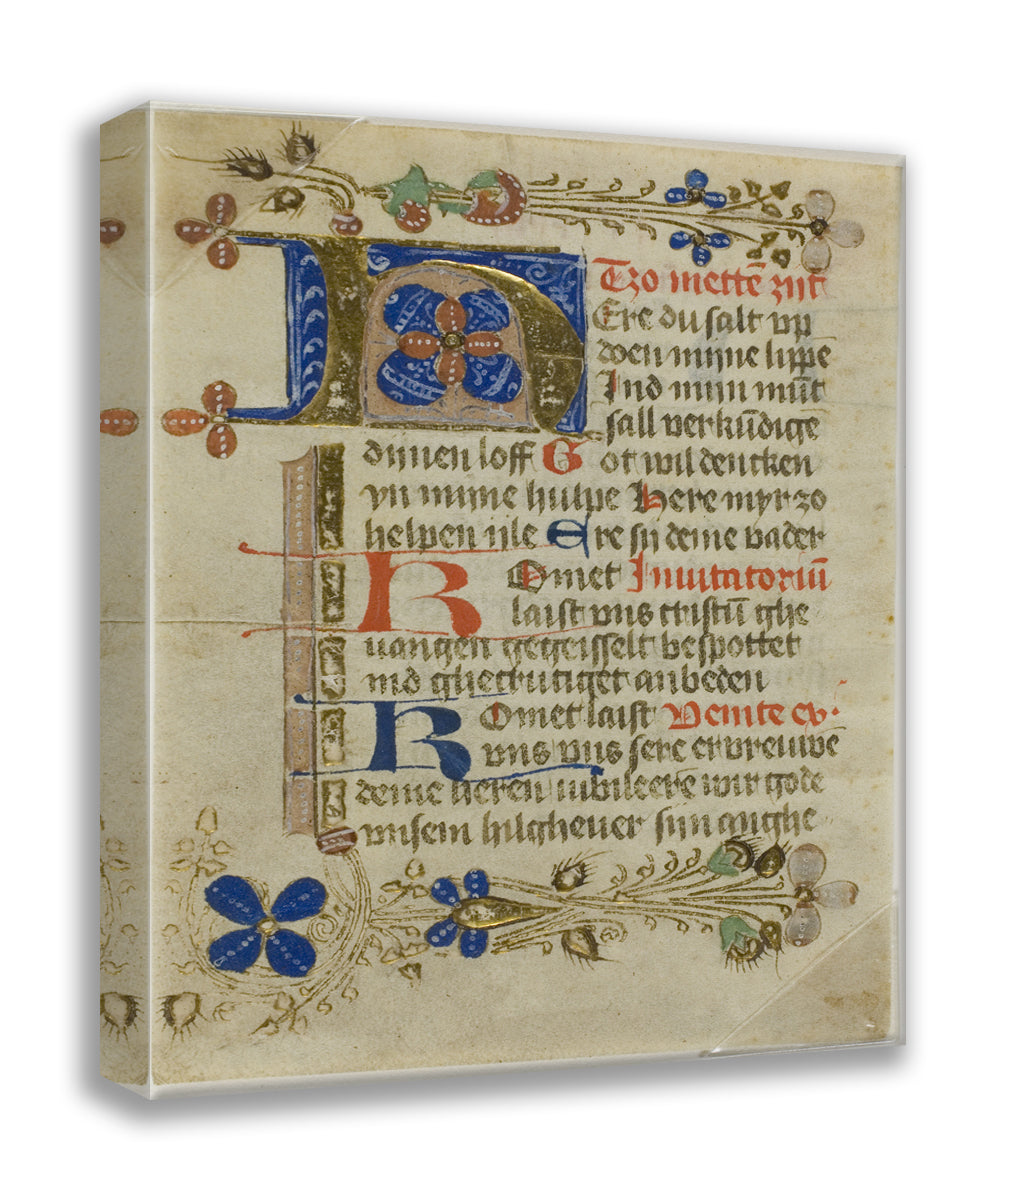 Tzo mettē zijt
HEre du salt vp
doen mijne lippe
Ind mijn mūt
sall verkūdigē
dijnen loff Got wil dencken
yn mijne hulpe Here myr zo
helpen ijle Ere sij deme vader
Komet Inuitatoriū
laist vns cristū ghe
uangen gegeisselt bespottet
ind ghecrutiget anbeden
Komet laist Venite ex
vns vns sere ervreuwē
deme heren iubileerē wir gode
vnsem hilgheuer sijn anghe